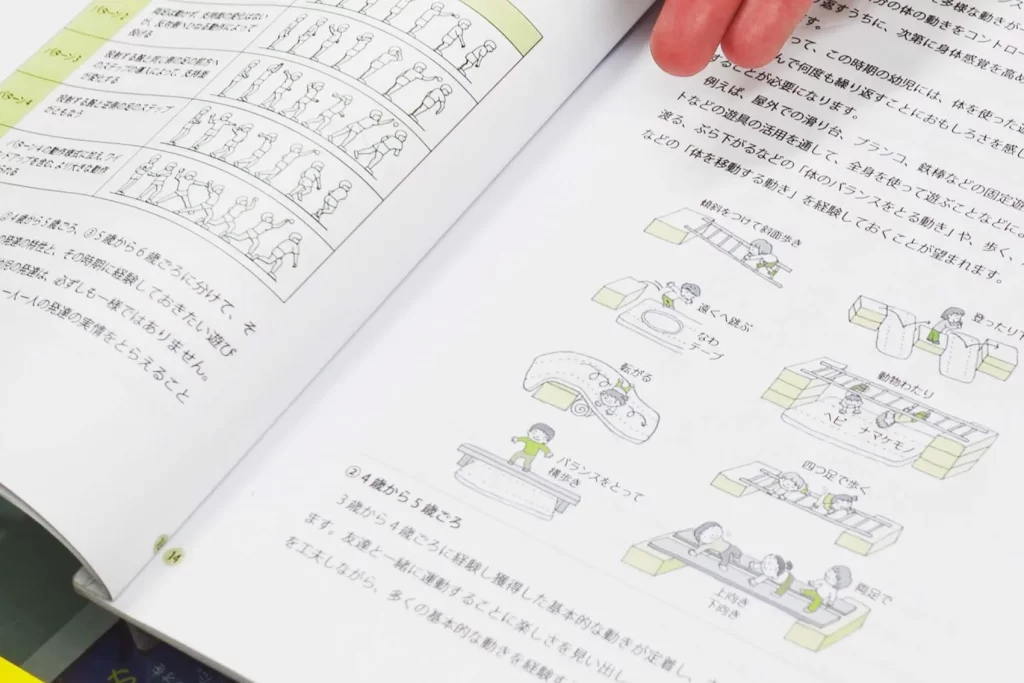 パターン3
パターン4
投げる
反対する腕と同じ側の足の前方へ
のステップの導入によって、支持面
が安定する
投射する腕と逆側の足のステップ
をともなう
パターン4の動作様式に加え、ワイ
ンドアップを含む、より大きな動作
から投げる
②4歳から5歳ごろ、③5歳から6歳ごろに分けて、そ
の発達の特性と、その時期に経験しておきたい遊び
の発達は、必ずしも一様ではありません。
一人一人の発達の実情をとらえること
14
な多様な動きが
分の体の動きをコントロー
返すうちに、次第に身体感覚を高め
って、この時期の幼児には、体を使った遊
んで何度も繰り返すことにおもしろさを感じ
することが必要になります。
例えば、屋外での滑り台、ブランコ、鉄棒などの固定遊
トなどの遊具の活用を通して、全身を使って遊ぶことなどに
渡る、ぶら下がるなどの「体のバランスをとる動き」や、歩く、
などの「体を移動する動き」を経験しておくことが望まれます。
傾斜をつけて斜面歩き
遠くへ跳ぶ
なわ
テープ
登ったり下
転がる
動物わたり
ヘビ
ナマケモノ
バランスをとって
横歩き
四つ足で歩く
上向き
下向き
両足で
②4歳から5歳ごろ
3歳から4歳ごろに経験し獲得した基本的な動きが定着し、
ます。友達と一緒に運動することに楽しさを見い出し、
を工夫しながら、多くの基本的な動きを経験す